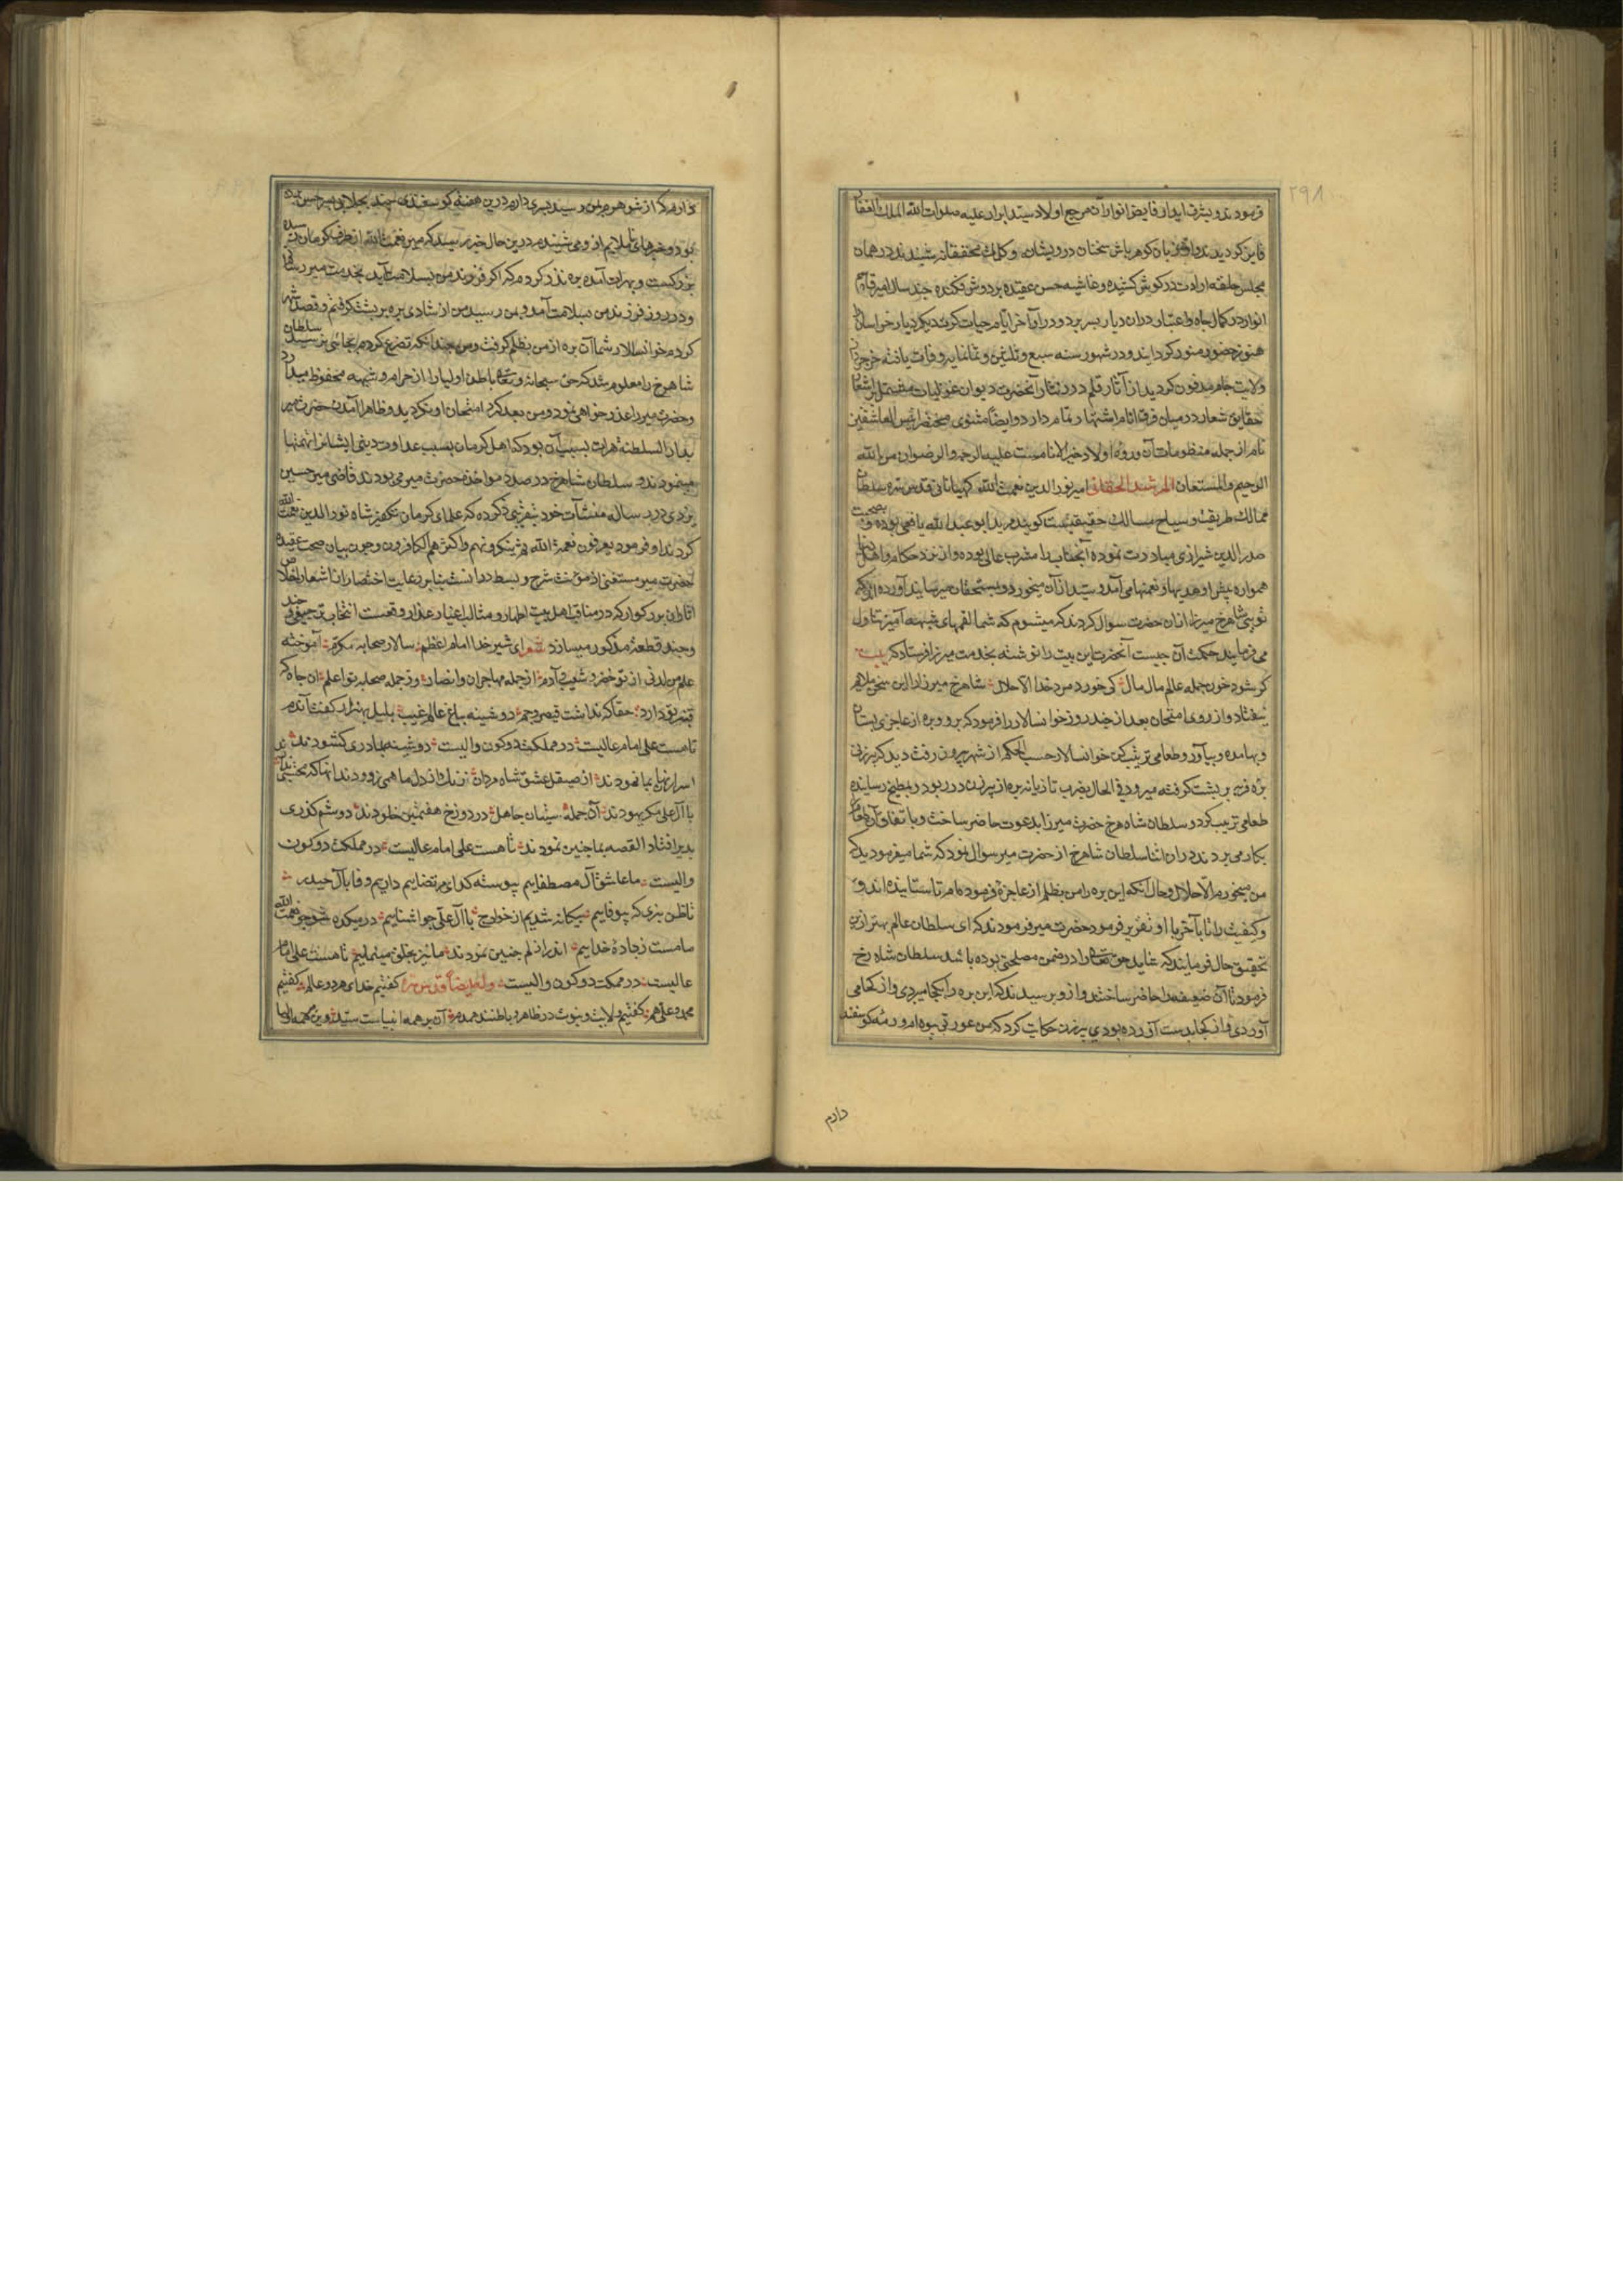 فرمودند و بشرف دیدار فایض انوار آن مرجع اولاد سید ابرار علیه صلوات الله الملک الغفار
فایز کردیدند و از زبان کوهرپاش سخنان درویشانه و کلمات محققانه شنیدند در همان
مجلس حلقه ارادت در کوش کشیده و غاشیه حسن عقیده بر دوش فکنده چند سال امیر قاسم
انوار در کمال جاه و اعتبار در آن دیار بسر برد و در اواخر ایام حیات کرت دیکر دیار خراسان را
بنور حضور منور کردانید و در شهور سنه سبع و ثلثین و ثمانمایه وفات یافته در خرجرد
ولایت جام مدفون کردید از آثار قلم درر نثار آنحضرت دیوان غزلیات مشتمل بر اشعار
حقایق شعار در میان فرق انام اشتهار تمام دارد و ایضا مثنوی مختصر انیس العاشقین
نام از جمله منظومات آن دوحه اولاد خیر الانامست علیه الرحمه و الرضوان من الله
الرحیم المستعان المرشد الحقانی امیر نور الدین نعمت الله کهبنانی قدس سره سلطان
ممالک طریقت و سیاح مسالک حقیقیست کویند مرید ابو عبد الله یافعی بوده و بصحبت
صدر الدین شیرازی مبادرت نموده آنجناب را مشرب عالی بوده و از نزد حکام و اهل دنیا
همواره پیش او هدیها و نعمتها می آمد و سید از آن میخورد و بمستحقان میرسانید آورده اند که
نوبتی شاهرخ میرزا از آن حضرت سوال کردند که میشنوم که شما لقمهای شبهه آمیز تناول
می فرمایند حکمت آن چیست آنحضرت این بیت را نوشته بخدمت میرزا فرستاد که بیت
کر شود خون جمله عالم مال مال کی خورد مرد خدا الا حلال شاهرخ میرزا را این سخن ملایم
نیفتاد و از روی امتحان بعد از چند روز خوانسالار را فرمود که برو و بره از عاجزی بستان
و بها مده و بیاور و طعامی ترتیب کن خوانسالار حسب الحکم از شهر بیرون رفت دید که پیرزنی
بره فربه بر پشت کرفته میرود فی الحال بضرب تازیانه بره از پیرزن در ربود و بمطبخ رسانیده
طعامی ترتیب کرد و سلطان شاهرخ حضرت میر را بدعوت حاضر ساخت و باتفاق آن طعام
بکار می بردند در آن اثنا سلطان شاهرخ از حضرت میر سوال نمود که شما میفرمودید که
من نمیخورم الا حلال و حال آنکه این بره را من بظلم از عاجزه فرموده ام تا ستانیده اند و
و کیفیت را تا بآخر با او تقریر فرمود حضرت میر فرمودند که ای سلطان عالم بهتر ازین
تحقیق حال فرمایند که شاید حق تعالی را در ضمن مصلحتی بوده باشد سلطان شاهرخ
فرمود تا آن ضعیفه را حاضر ساختند و ازو پرسیدند که این بره را کجا میبردی و از کجا می
آوردی و از کجا بدست آورده بودی پیرزن حکایت کرد که من عورتی بیوه ام و رمه کوسفند
دارم
دارم که از شوهرم بمن رسید پسری دارم درین هفته کوسفندی چند بجلابی بسرخس برده
بود و خبرهای ناملایم ازو می شنیدم درین حال خبر رسید که میر نعمت الله از طرف کرمان سید
بزرکست و بهرات آمده بره نذر کردم که اکر فرزند من بسلامت بیاید بخدمت میر رسانم
و در روز فرزند من بسلامت آمد و بمن رسید من از شادی بره بر پشت کرفتم و قصد شهر
کردم خوانسالار شما آن بره از من بظلم کرفت و من چندانکه تضرع کردم بجائی نرسید سلطان
شاهرخ را معلوم شد که حق سبحانه و تعالی باطن اولیا را از حرام و شبهه محفوظ میدارد
و حضرت میر را عذر خواهی نمود و من بعد کرد امتحان او نکردید و ظاهرا آمدن حضرت میر
بدار السلطنه هرات بسبب آن بود که اهل کرمان بسبب عداوت دینی ایشانرا تهمتها
مینمودند و سلطان شاهرخ در صدد مواخذه حضرت میر می بودند قاضی میر حسین
یزدی در رساله منشآت خود بتقریبی ذکر کرده که علمای کرمان تکفیر شاه نور الدین نعمت الله
کردند او فرمود یعرفون نعمة الله ثم ینکرونها و اکثرهم الکافرون و چون بیان صحت عقیده
حضرت میر مستغنی از مؤنت شرح و بسط دانست بنا بر رعایت اختصار از اشعار اخلاص
آثار آن بزرکوار که در مناقب اهل بیت اطهار و مثالب اغیار غدار واقعست انتخاب ترجیعی چند
و چند قطعه مذکور میسازد شعر ای شیر خدا امام اعظم سالار صحابه مکرم آموخته
علم من لدنی از تو خضر و شیث و آدم از جمله مهاجران و انصار وز جمله صحابه تو اعلم آن جاه که
قنبر تو دارد حقا که نداشت قیصر و جم دوشینه بباغ عالم غیب بلبل بهزار کفت آندم
تا هست علی امام عالیست در مملکت دو کون والیست دوشینه بما دری کشودند
اسرار نهان بما نمودند از صیقل عشق شاه مردان زنک از دل ما همی زدودند آنها که محبتی ندارند
با آل علی مکر یهودند آن جمله سنیان جاهل در دوزخ هفتمین خلودند دوشم کذری
بدیر افتاد القصه بما چنین نمودند تا هست علی امام عالیست در مملکت دو کون
والیست ما عاشق آل مصطفاییم پیوسته کدای مرتضاییم داریم وفا با آل حیدر
تا ظن نبری که بیوفاییم بیکانه شدیم از خوارج با آل علی چو آشناییم در میکده شو چو نعمت الله
سامست ز جاده خداییم اندر ازلم چنین نمودند ما نیز بخلق مینماییم تا هست علی امام
عالیست در مملکت دو کون والیست وله ایضا قدس سره کفتیم خدای هر دو عالم کفتیم
محمد و علی هم کفتیم ولایت و نبوت در ظاهر و باطنند همدم آن بر همه انبیاست سید وین بر همه اولیا